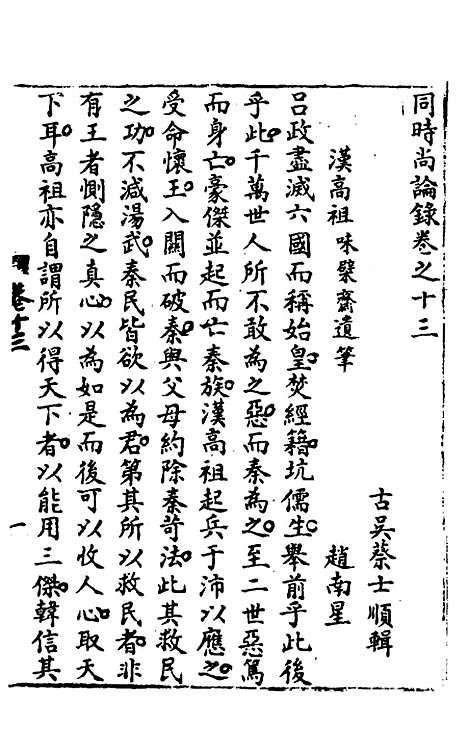 同時尚論錄卷之十三
古吳蔡士順輯
漢高祖 味檗齋遺筆 趙南星
呂政盡滅六國而稱始皇焚經籍坑儒生舉前乎此後
乎此千萬世人所不敢為之惡而秦為之至二世惡篤
而身亡豪傑並起而亡秦族漢高祖起兵于沛以應之
受命懷王入關而破秦與父母約除秦苛法此其救民
之功不減湯武秦民皆欲以為君第其所以救民者非
有王者惻隱之真心以為如是而後可以收人心取天
下耳高祖亦自謂所以得天下者以能用三傑韓信其
卷十三
一